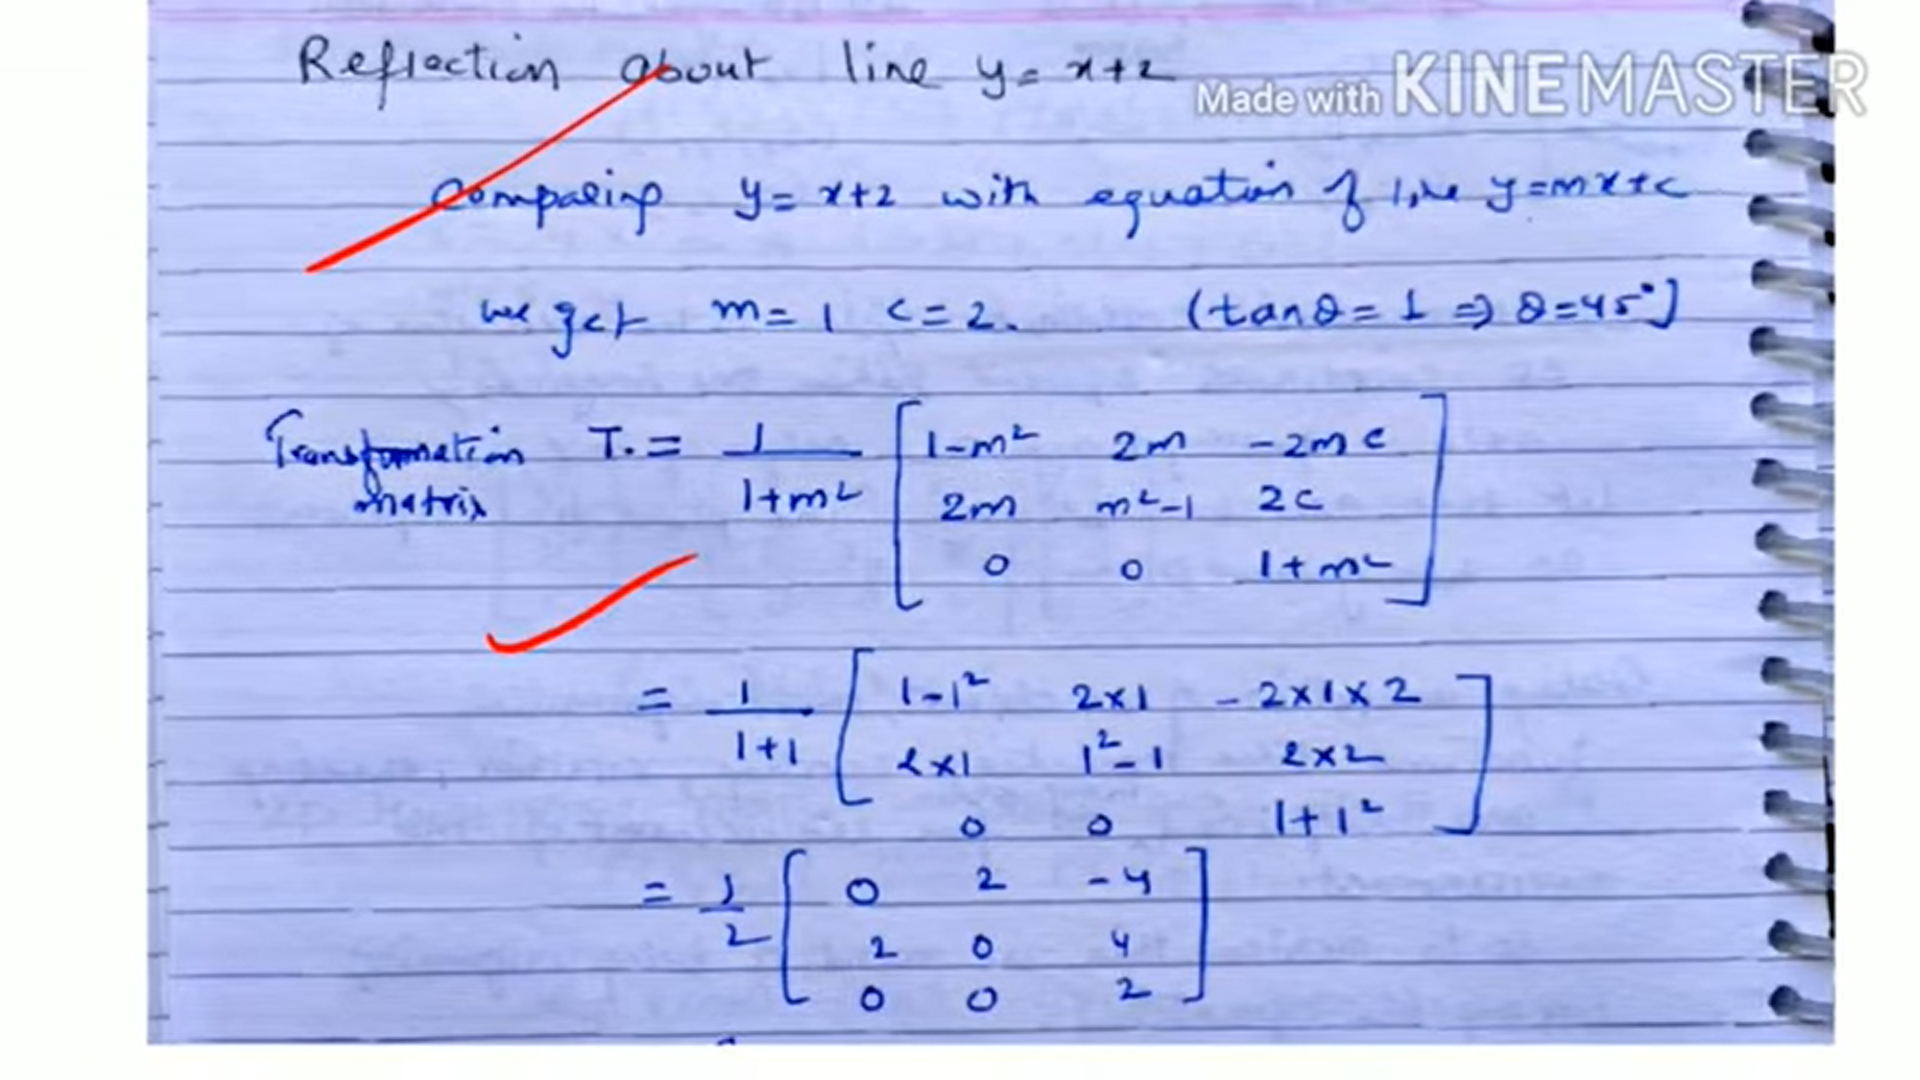 Reflection about line y = x+2
Made with KINEMASTER
Comparing y = x+2 with equation of line y=mx+c
we get m = 1 c = 2. (tanθ = 1 ⇒ θ=45°)
Transformation matrix T. = 1/(1+m²) [1-m² 2m -2mc
2m m²-1 2c
0 0 1+m²]
= 1/(1+1) [1-1² 2×1 -2×1×2
2×1 1²-1 2×2
0 0 1+1²]
= 1/2 [0 2 -4
2 0 4
0 0 2]